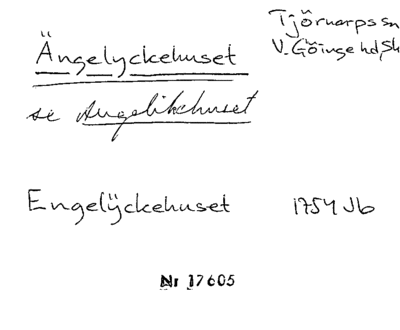 Ängelyckehuset
Tjörnarps sn
V. Göinge hd, Sk
se Angelikehuset
Engelÿckehuset 1754 Jb
Nr 17605